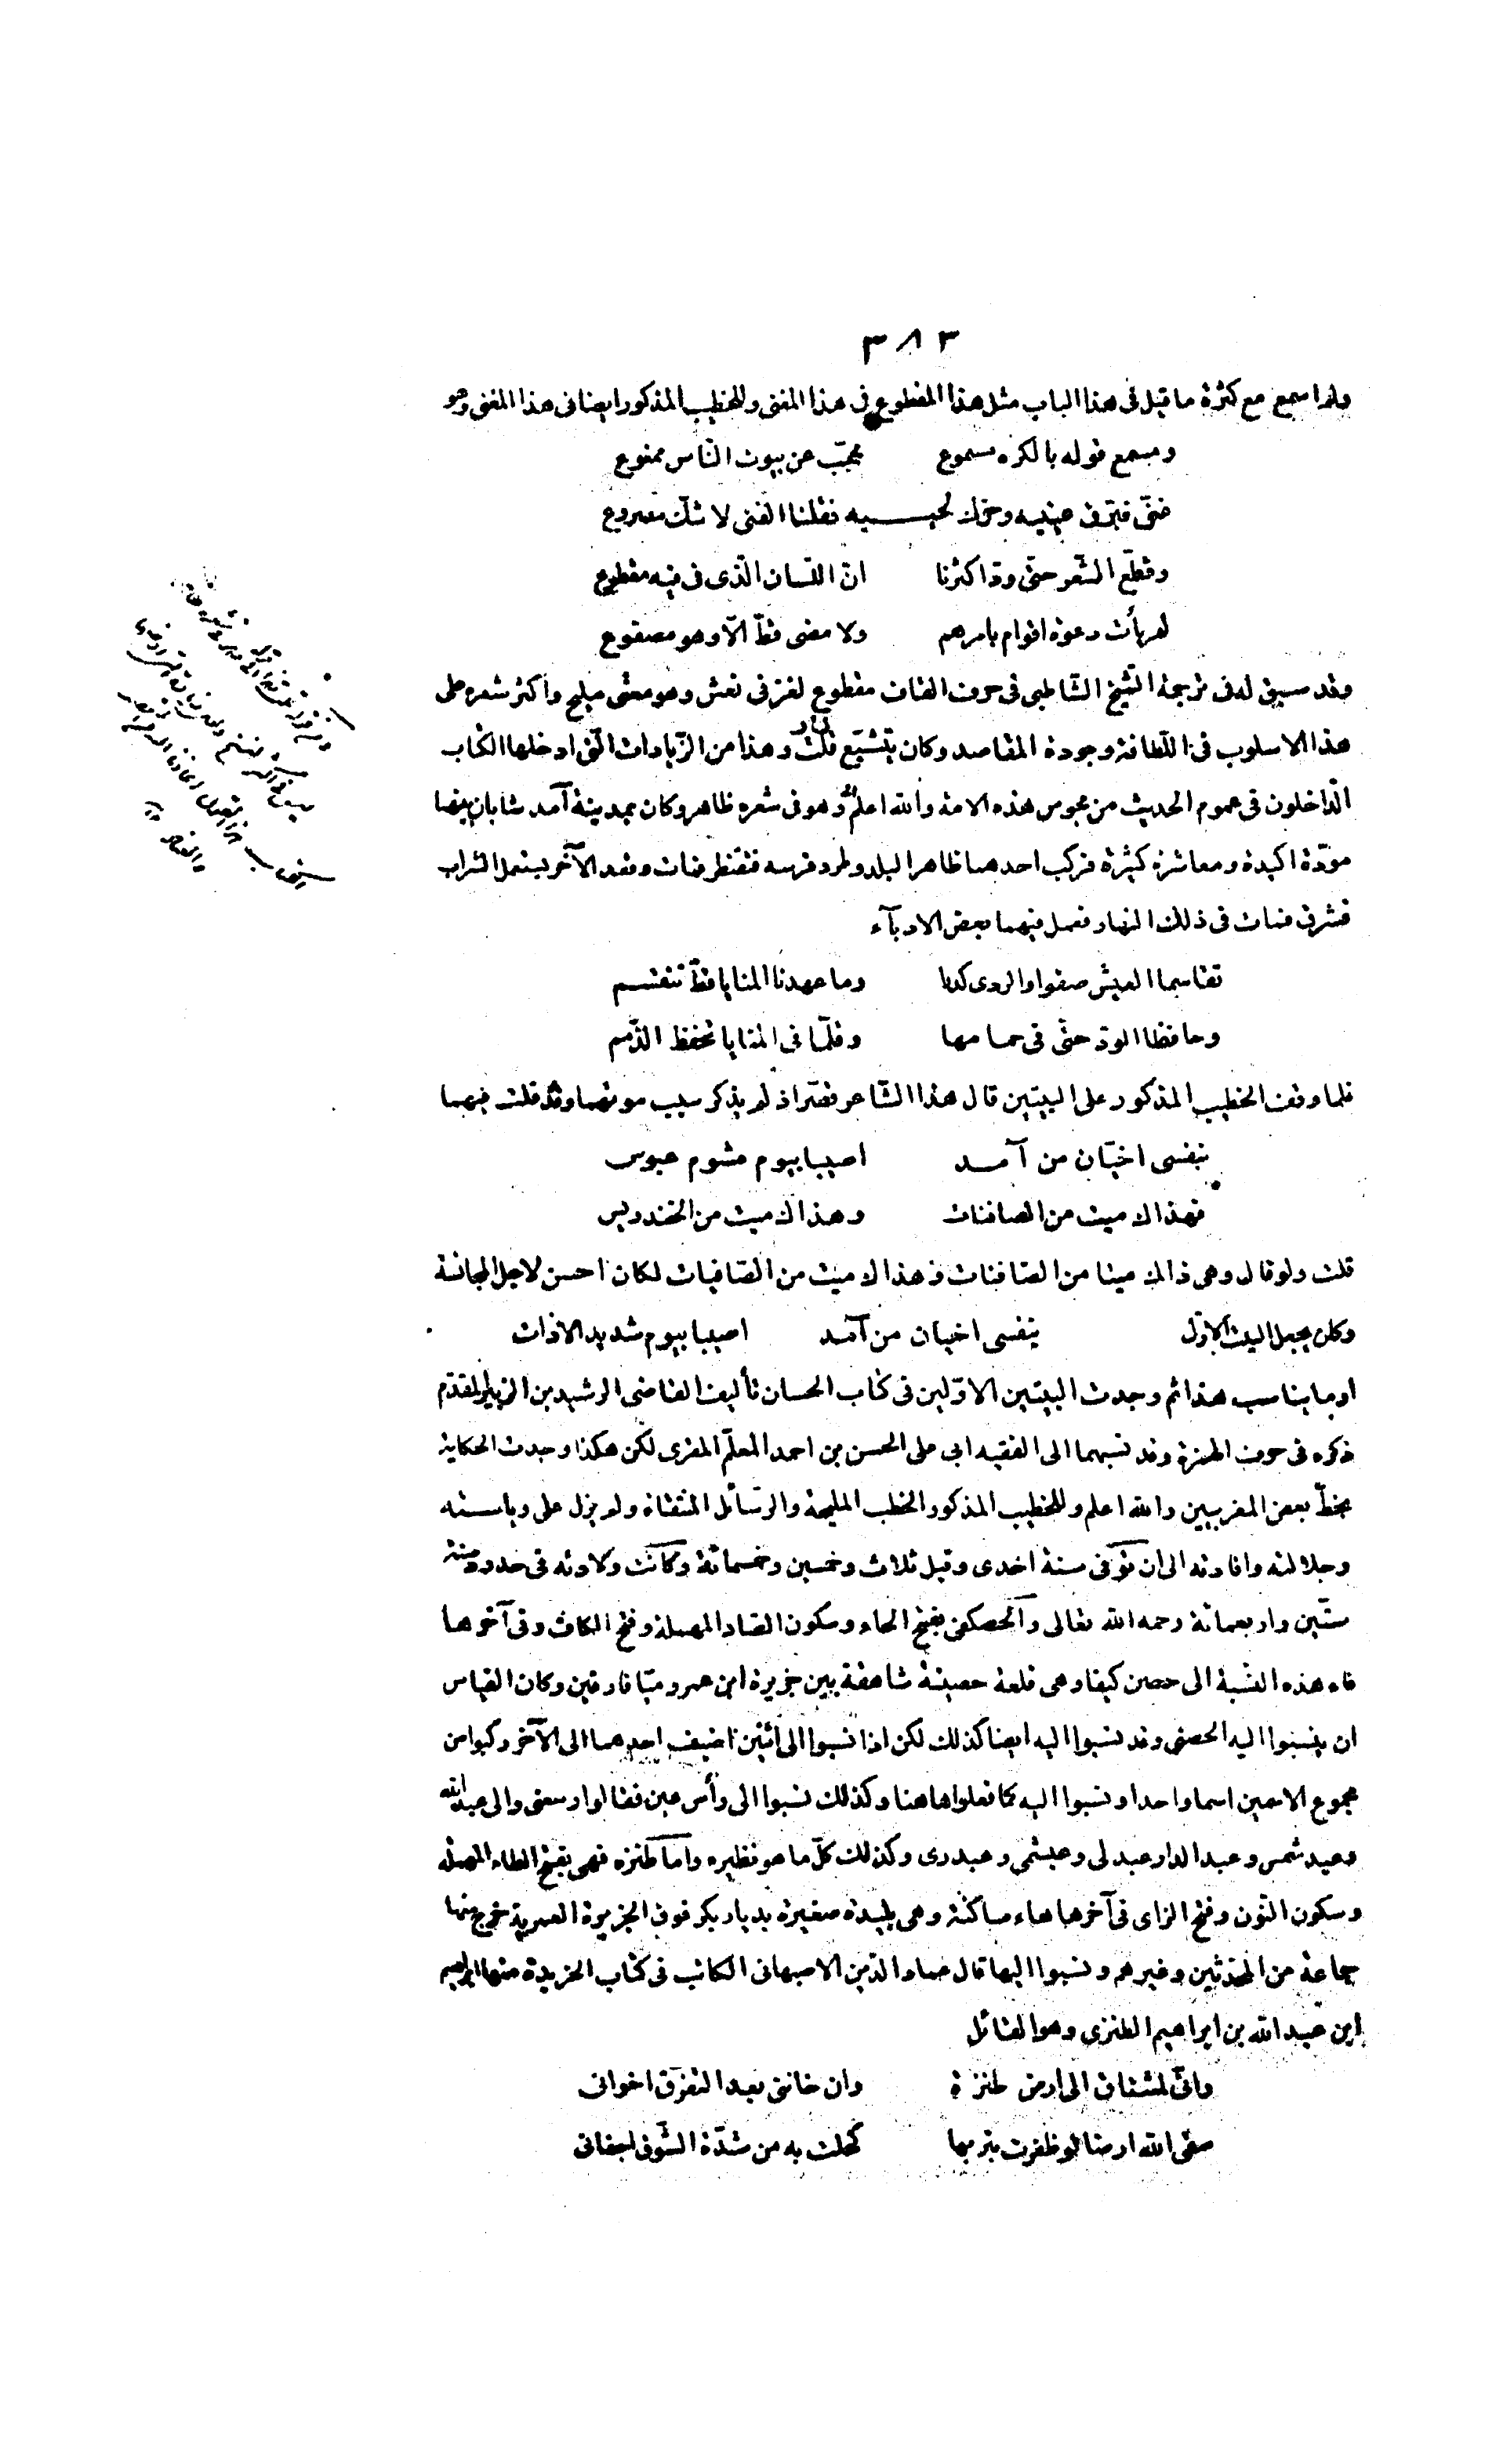 ٣٨٣
ولم اسمع مع كثرة ما قيل فى هذا الباب مثل هذا المقطوع فى هذا المغنى وللخطيب المذكور ايضا فى هذا المغنى وهو
ومسمع قوله بالكره مسموع محجّب عن بيوت النّاس ممنوع
غنّى فبرّق عينيه وحرّك لحييه فقلنا الفتى لا شكّ مصروع
وقطّع الشّعر حتّى ودّ اكثرنا انّ اللّسان الّذى فى فيه مقطوع
لم يأت دعوة اقوام بامرهم ولا مضى قطّ الّا وهو مصفوع
وقد سبق له فى ترجمة الشّيخ الشّاطبى فى حرف القاف مقطوع لغز فى نعش وهو معنّى مليح واكثر شعره على
هذا الاسلوب فى اللّطافة وجودة المقاصد وكان يتشيّع قلت وهذا من الزّيادات الّتى ادخلها الكتّاب
الدّاخلون فى عموم الحديث من مجوس هذه الامة والله اعلم وهو فى شعره ظاهر وكان بمدينة آمد شابان بينهما
مودّة اكيدة ومعاشرة كثيرة فركب احدهما ظاهر البلد وطرد فرسه فتقنطر فمات وقعد الآخر يستعمل الشراب
فشرق فمات فى ذلك النهار فعمل فيهما بعض الادبآء
تقاسما العيش صفوا والردى كدرا وما عهدنا المنايا قطّ تنقسم
وحافظا الودّ حتّى فى حمامهما وقلّما فى المنايا تحفظ الذّمم
فلما وقف الخطيب المذكور على البيتين قال هذا الشّاعر قصّر اذ لم يذكر سبب موتهما وقد قلت فيهما
بنفسى اخيّان من آمد اصيبا بيوم مشوم عبوس
فهذا كميت من الصافنات وهذا كميت من الخندريس
قلت ولو قال وهى ذاك ميتا من الصّافنات وهذا كميت من الصّافيات لكان احسن لاجل المجانسة
وكان يجعل البيت الاوّل بنفسى اخيان من آمد اصيبا بيوم شديد الاذات
او ما يناسب هذا ثم وجدت البيتين الاوّلين فى كتاب الحسان تأليف القاضى الرشيد بن الزبير المقدّم
ذكره فى حرف الهمزة وقد نسبهما الى الفقيه ابى على الحسن بن احمد المعلّم المقرى لكن هكذا وجدت الحكاية
بخطّ بعض المغربيين والله اعلم وللخطيب المذكور الخطب المليحة والرّسائل المنتقاة ولم يزل على رياسته
وجلالته وافادته الى ان توفى سنة احدى وقيل ثلاث وخمسين وخمسمائة وكانت ولادته فى حدود سنة
ستّين واربعمائة رحمه الله تعالى والحصكفى بفتح الحاء وسكون الصّاد المهملة وفتح الكاف وفى آخرها
فاء هذه النّسبة الى حصن كيفا وهى قلعة حصينة شاهقة بين جزيرة ابن عمرو ميّافارقين وكان القياس
ان ينسبوا اليه الحصنى وقد نسبوا اليه ايضا كذلك لكن اذا نسبوا الى اثنين اضيف احدهما الى الآخر ركبوا من
مجموع الاسمين اسما واحدا ونسبوا اليه كما فعلوا هاهنا وكذلك نسبوا الى رأس عين فقالوا رسعنى والى عبد الله
وعبد شمس وعبد الدار عبدلى وعبشمى وعبدرى وكذلك كلّ ما هو نظيره واما طنزه فهى بفتح الطاء المهملة
وسكون النّون وفتح الزاى فى آخرها هاء ساكنة وهى بليدة صغيرة بديار بكر فوق الجزيرة العمرية خرج منها
جماعة من المحدّثين وغيرهم ونسبوا اليها قال عماد الدّين الاصبهانى الكاتب فى كتاب الخريدة منها ابراهيم
ابن عبد الله بن ابراهيم الطنزى وهو القائل
وانّى لمشتاق الى ارض طنزة وان خاننى بعد التفرّق اخوانى
سقى الله ارضا لو ظفرت بتربها كحلت به من شدّة الشّوق اجفانى